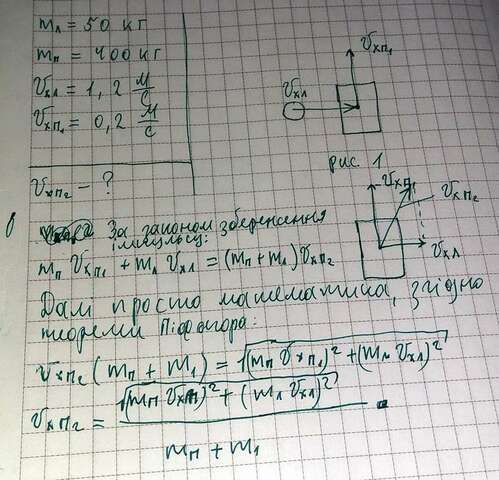 mл = 50 кг
mп = 400 кг
Vхл = 1,2 м/с
Vхп₁ = 0,2 м/с
Vхп₂ - ?
Vхп₁
Vхл
рис. 1
Vхп₁
Vхп₂
Vхл
За законом збереження
імпульсу:
mп Vхп₁ + mл Vхл = (mп + mл) Vхп₂
Далі просто математика, згідно
теореми Піфагора:
Vхп₂ (mп + m1) = √((mп Vхп₁)² + (mл Vхл)²)
Vхп₂ = √((mп Vхп)² + (mл Vхл)²)
mп + m1